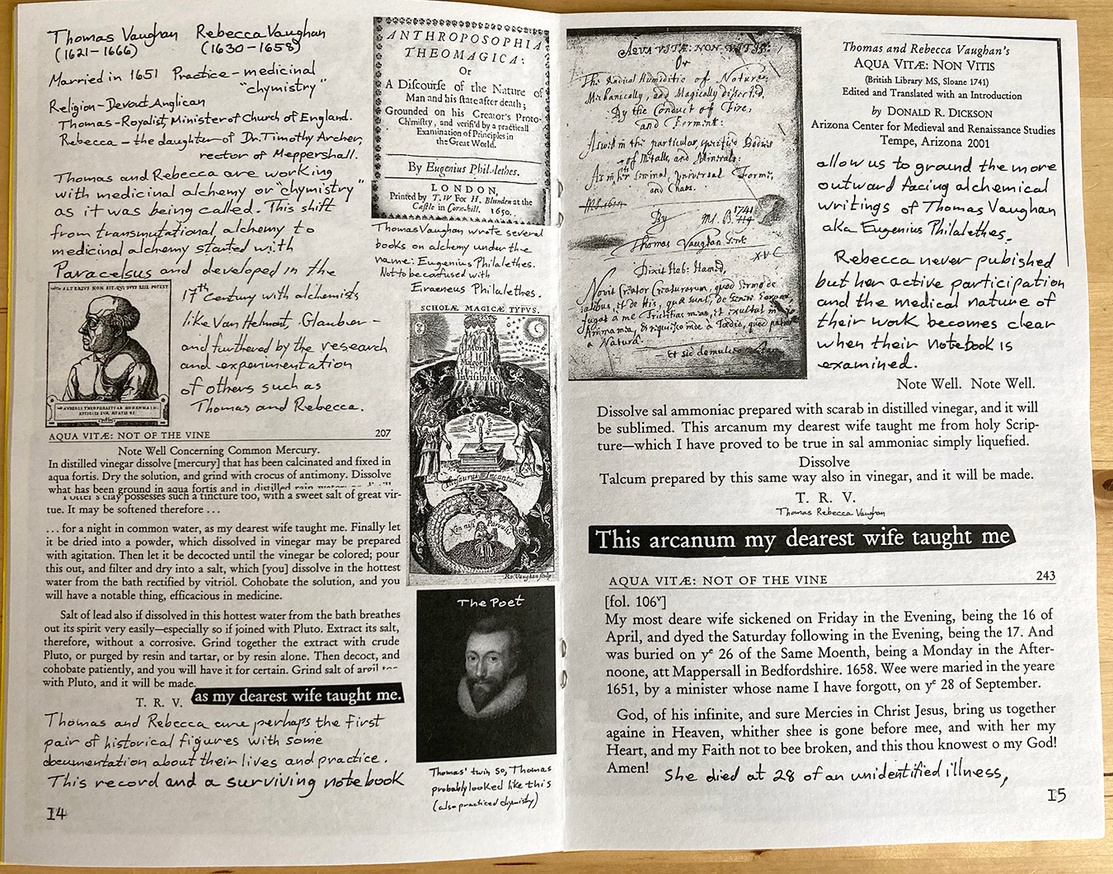 Thomas Vaughan Rebecca Vaughan
(1621-1666) (1630-1658)
Married in 1651 Practice - medicinal
"chymistry"
Religion - Devout Anglican
Thomas - Royalist, Minister of Church of England.
Rebecca - the daughter of Dr. Timothy Archer,
rector of Meppershall.
Thomas and Rebecca are working
with medicinal alchemy or "chymistry"
as it was being called. This shift
from transmutational alchemy to
medicinal alchemy started with
Paracelsus and developed in the
17th century with alchemists
like Van Helmont, Glauber -
and furthered by the research
and experimentation
of others such as
Thomas and Rebecca.
ANTHROPOSOPHIA
THEOMAGICA:
Or
A Discourse of the Nature of
Man and his state after death;
Grounded on his Creator's Proto-
Chimistry, and verifi'd by a practicall
Examination of Principles in
the Great World.
By Eugenius Philalethes.
LONDON,
Printed by T. W for H. Blunden at the
Castle in Corn-hill. 1650.
Thomas Vaughan wrote several
books on alchemy under the
name: Eugenius Philalethes.
Not to be confused with
Eraeneus Philalethes.
SCHOLÆ MAGICÆ TYPVS.
AQUA VITÆ: NOT OF THE VINE 207
Note Well Concerning Common Mercury.
In distilled vinegar dissolve [mercury] that has been calcinated and fixed in
aqua fortis. Dry the solution, and grind with crocus of antimony. Dissolve
what has been ground in aqua fortis and in distilled rain
Potter's clay possesses such a tincture too, with a sweet salt of great vir-
tue. It may be softened therefore ...
... for a night in common water, as my dearest wife taught me. Finally let
it be dried into a powder, which dissolved in vinegar may be prepared
with agitation. Then let it be decocted until the vinegar be colored; pour
this out, and filter and dry into a salt, which [you] dissolve in the hottest
water from the bath rectified by vitriol. Cohobate the solution, and you
will have a notable thing, efficacious in medicine.
Salt of lead also if dissolved in this hottest water from the bath breathes
out its spirit very easily—especially so if joined with Pluto. Extract its salt,
therefore, without a corrosive. Grind together the extract with crude
Pluto, or purged by resin and tartar, or by resin alone. Then decoct, and
cohobate patiently, and you will have it for certain. Grind salt of
with Pluto, and it will be made.
T. R. V. as my dearest wife taught me.
Thomas and Rebecca are perhaps the first
pair of historical figures with some
documentation about their lives and practice.
This record and a surviving notebook
The Poet
Thomas' twin, so, Thomas
probably looked like this
(also practiced chymistry)
14
AQVA VITÆ: NON VITIS:
Or
The Radical Humiditie of Nature:
Mechanically, and Magically dissected,
By the Conduct of Fire,
and Ferment:
As well in the particular, specific Bodies
of Metalls, and Minerals:
As in its seminal, universal Forms,
and Chaos.
By
Thomas Vaughan Gent.
Thomas and Rebecca Vaughan's
AQUA VITÆ: NON VITIS
(British Library MS, Sloane 1741)
Edited and Translated with an Introduction
by DONALD R. DICKSON
Arizona Center for Medieval and Renaissance Studies
Tempe, Arizona 2001
allow us to ground the more
outward facing alchemical
writings of Thomas Vaughan
aka Eugenius Philalethes.
Rebecca never pubished
but her active participation
and the medical nature of
their work becomes clear
when their notebook is
examined.
Note Well. Note Well.
Dissolve sal ammoniac prepared with scarab in distilled vinegar, and it will
be sublimed. This arcanum my dearest wife taught me from holy Scrip-
ture—which I have proved to be true in sal ammoniac simply liquefied.
Dissolve
Talcum prepared by this same way also in vinegar, and it will be made.
T. R. V.
Thomas Rebecca Vaughan
This arcanum my dearest wife taught me
AQUA VITÆ: NOT OF THE VINE 243
[fol. 106v]
My most deare wife sickened on Friday in the Evening, being the 16 of
April, and dyed the Saturday following in the Evening, being the 17. And
was buried on ye 26 of the Same Moenth, being a Monday in the After-
noone, att Mappersall in Bedfordshire. 1658. Wee were maried in the yeare
1651, by a minister whose name I have forgott, on ye 28 of September.
God, of his infinite, and sure Mercies in Christ Jesus, bring us together
againe in Heaven, whither shee is gone before mee, and with her my
Heart, and my Faith not to bee broken, and this thou knowest o my God!
Amen!
She died at 28 of an unidentified illness,
15